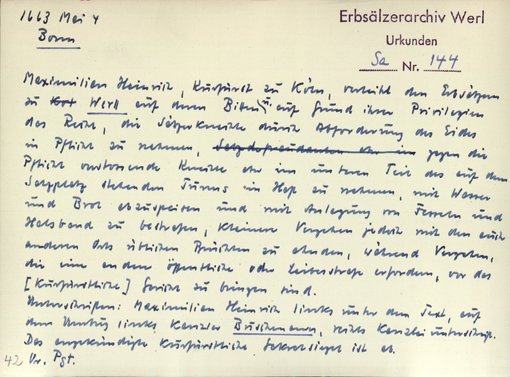 1663 Mai 4
Bonn
Erbsälzerarchiv Werl
Urkunden
Sa Nr. 144
Maximilian Heinrich, Kurfürst zu Köln, verleiht den Erbsälzern
zu Werl auf deren Bitten u. auf Grund ihrer Privilegien
das Recht, die Sälzerknechte durch Abforderung des Eides
in Pflicht zu nehmen, gegen die
Pflicht verstossende Knechte aber im unteren Teil des auf dem
Salzplatz stehenden Turms in Haft zu nehmen, mit Wasser
und Brot abzuspeisen und mit Anlegung von Fesseln und
Halsband zu bestrafen, kleinere Vergehen jedoch mit den auch
anderen Orts üblichen Brüchten zu ahnden, während Vergehen,
die eine andere öffentliche oder Leibesstrafe erfordern, vor das
[Kurfürstliche] Gericht zu bringen sind.
Unterschriften: Maximilian Heinrich links unter dem Text, auf
dem Umbug links Kanzler Buschmann, rechts Kanzleiunterschrift.
Das angekündigte Kurfürstliche Sekretsiegel ist ab.
42 Ur. Pgt.